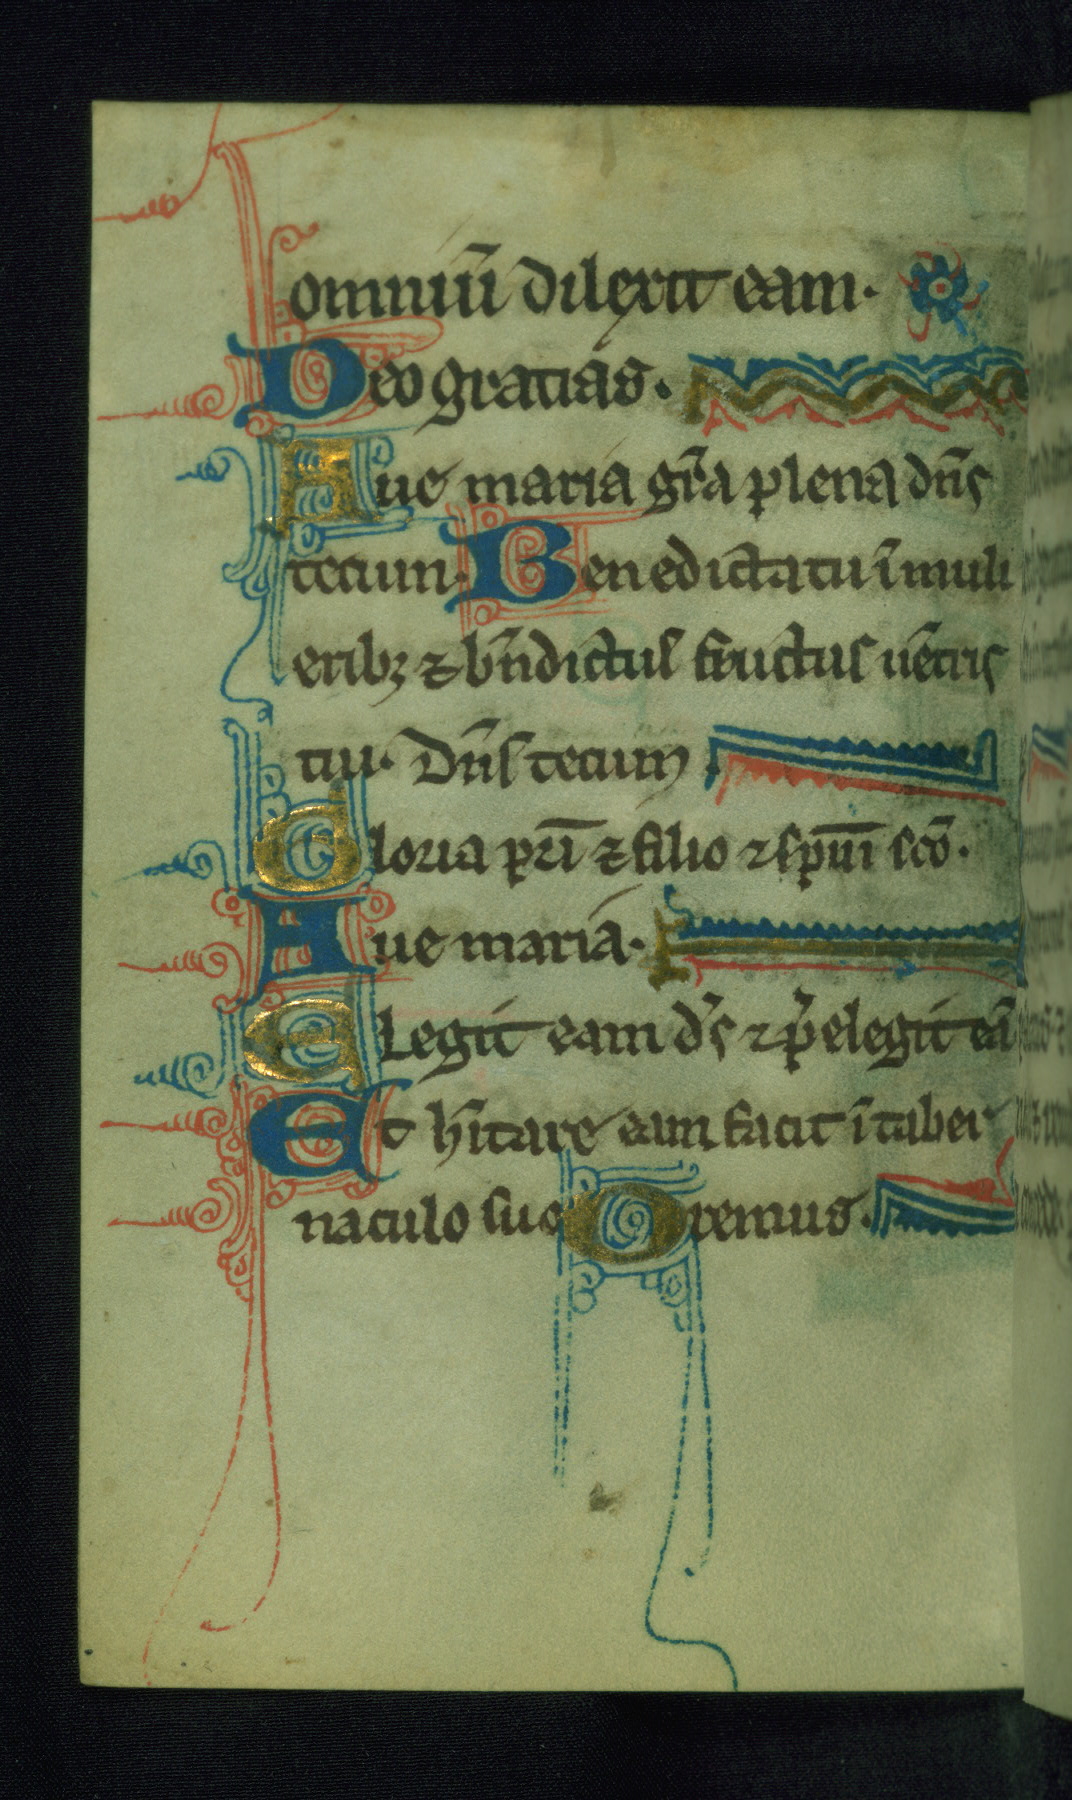 omniū dilexit eam.
Deo gratias.
Aue maria gr̄a plena dn̄s
tecum. Benedicta tu ī muli
eribꝫ ⁊ bn̄dictus fructus uētris
tui. Dn̄s tecum
Gloria pr̄i ⁊ filio ⁊ sp̄ui sc̄o.
Aue maria.
Elegit eam d̄s ⁊ p̄elegit eā
Et h̄itare eam facit ī taber
naculo suo Oremus.